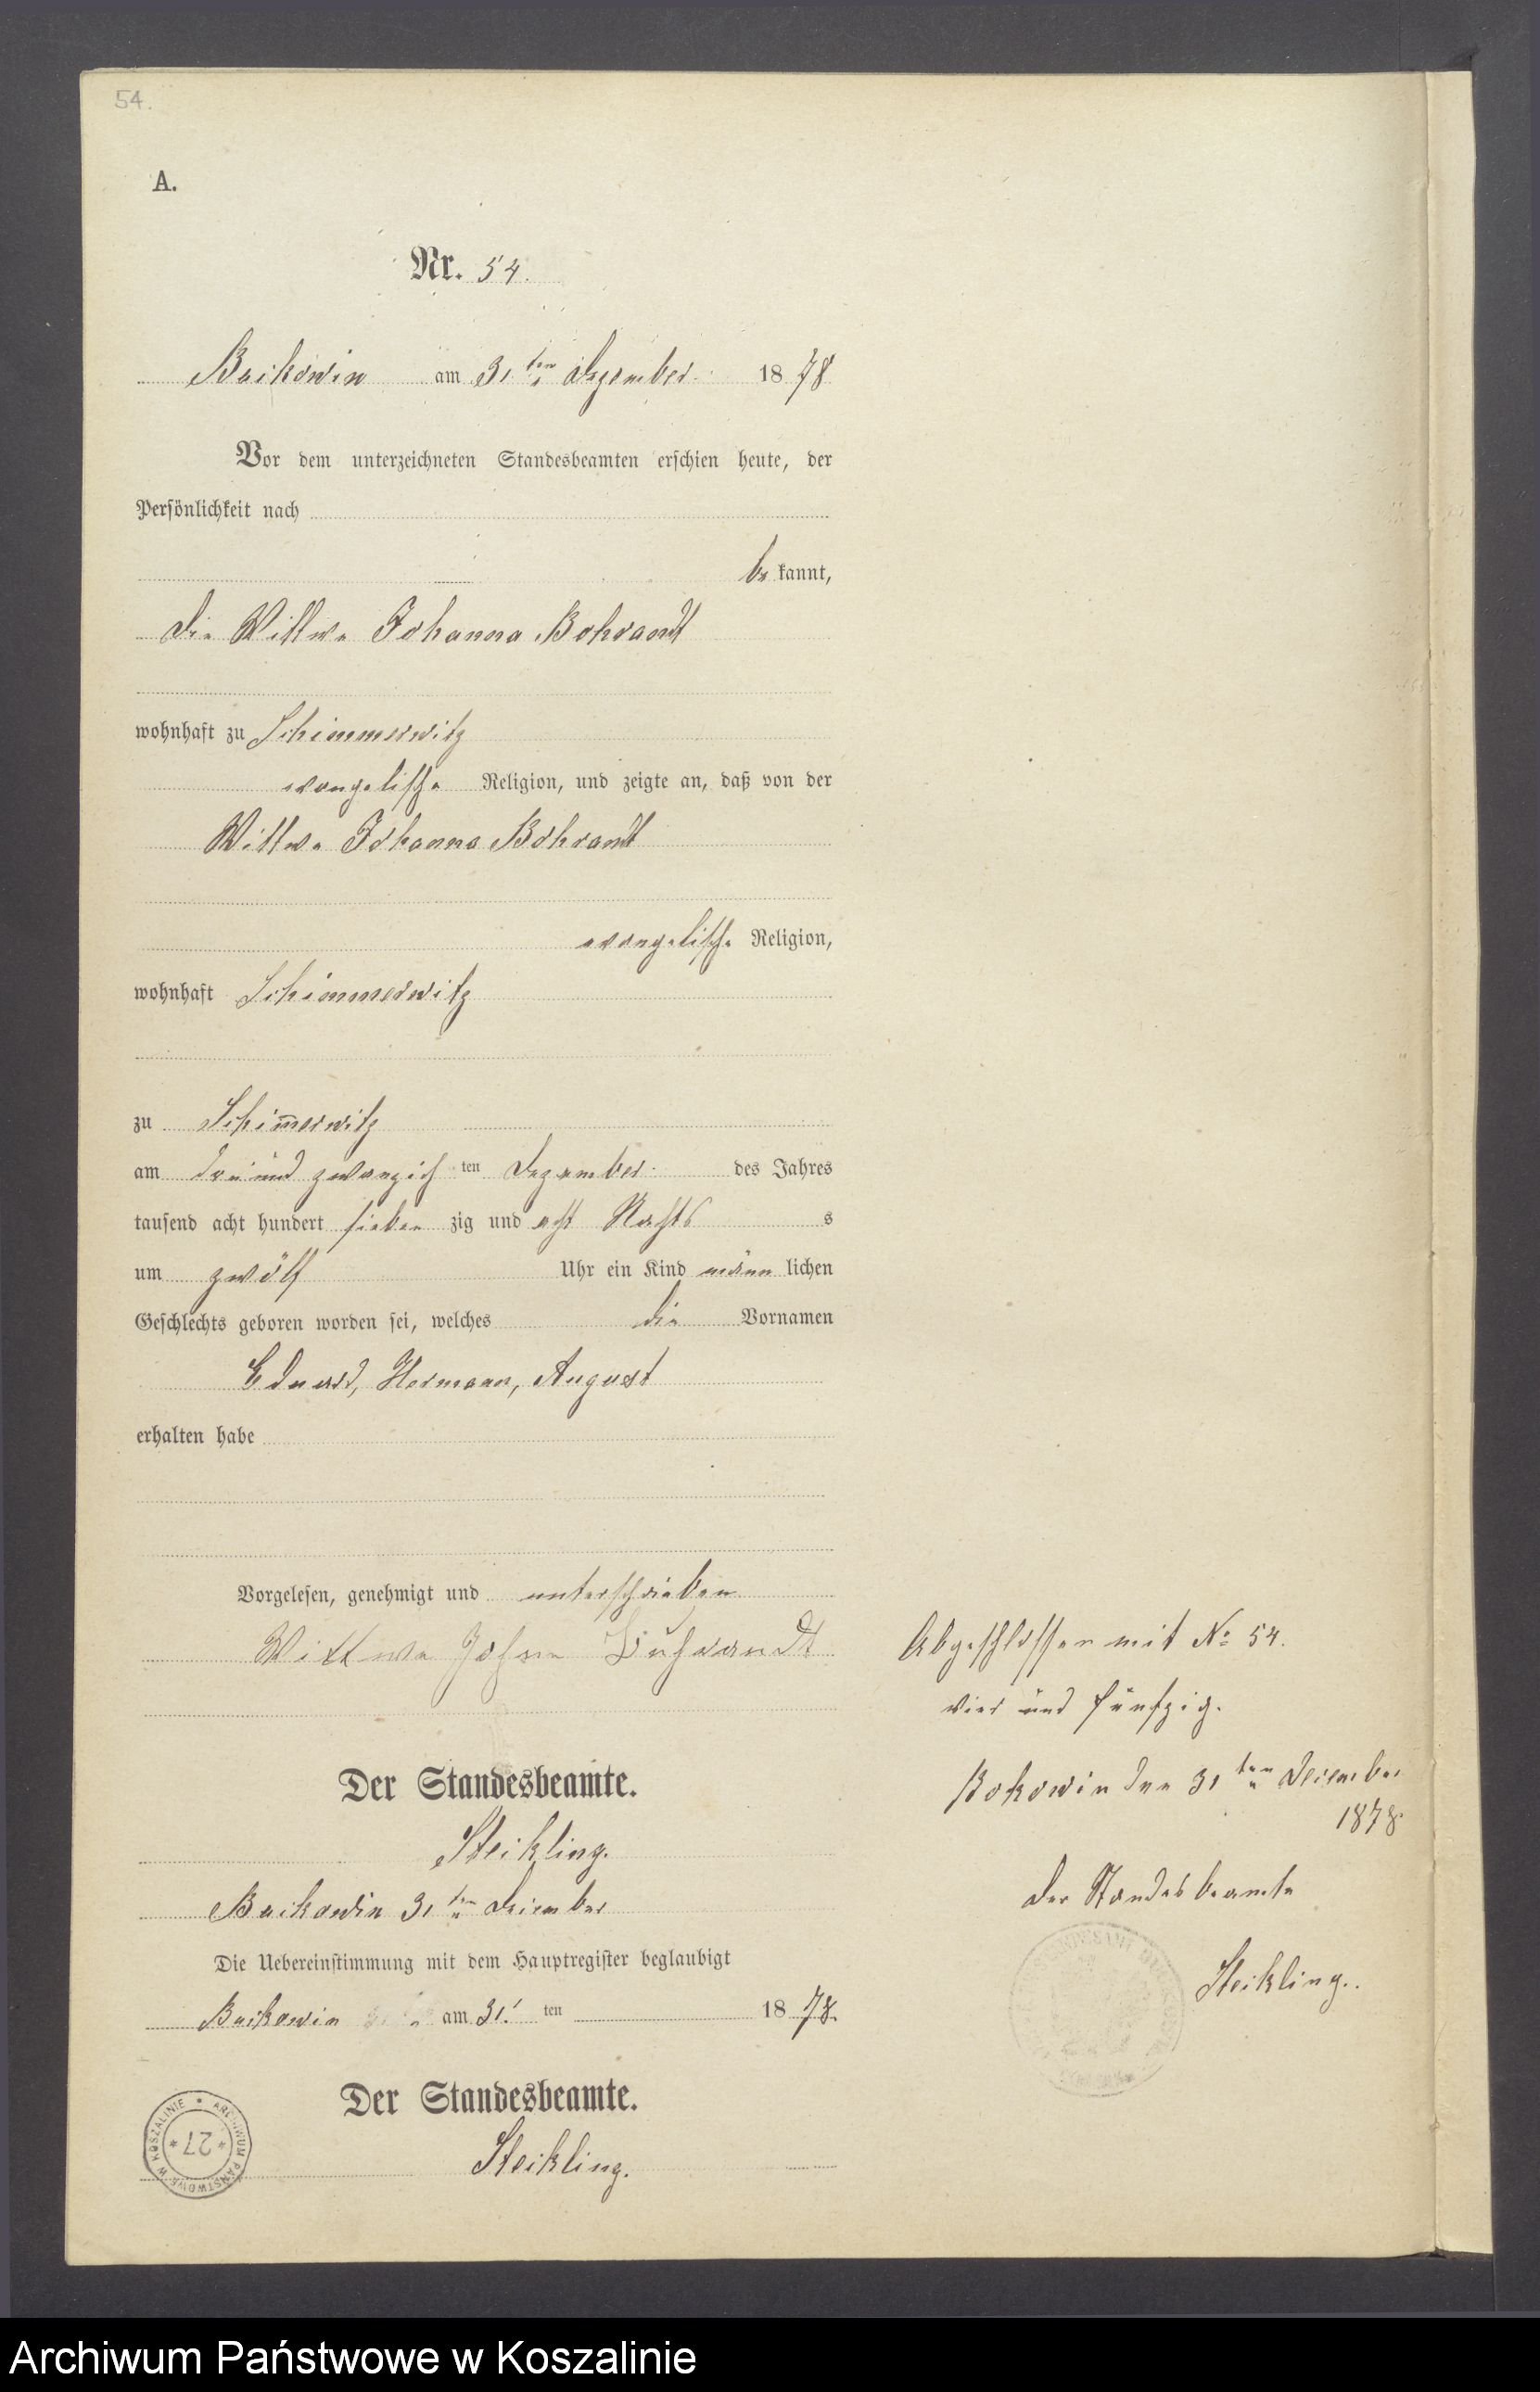 54.
A.
Nr. 54.
Buckowin am 31ten Dezember 1878
Vor dem unterzeichneten Standesbeamten erschien heute, der
Persönlichkeit nach
be kannt,
die Wittwe Johanna Bohrandt
wohnhaft zu Schimmerwitz
evangelische Religion, und zeigte an, daß von der
Wittwe Johanna Bohrandt
evangelische Religion,
wohnhaft Schimmerwitz
zu Schim̅erwitz
am drei und zwanzich ten Dezember des Jahres
tausend acht hundert sieben zig und acht Nachts s
um zwölf Uhr ein Kind männ lichen
Geschlechts geboren worden sei, welches die Vornamen
Eduard, Hermann, August
erhalten habe
Vorgelesen, genehmigt und unterschrieben
Wittwe
Der Standesbeamte.
Steikling.
Buckowin 31ten Dezember
Die Uebereinstimmung mit dem Hauptregister beglaubigt
Buckowin am 31. ten 1878.
Der Standesbeamte.
Steikling.
Abgeschlossen mit No 54.
vier und fünfzig.
Bokowin den 31ten Dezember
1878
Der Standesbeamte
Steikling.
ARCHIWUM PAŃSTWOWE W KOSZALINIE
* 27 *
Archiwum Państwowe w Koszalinie